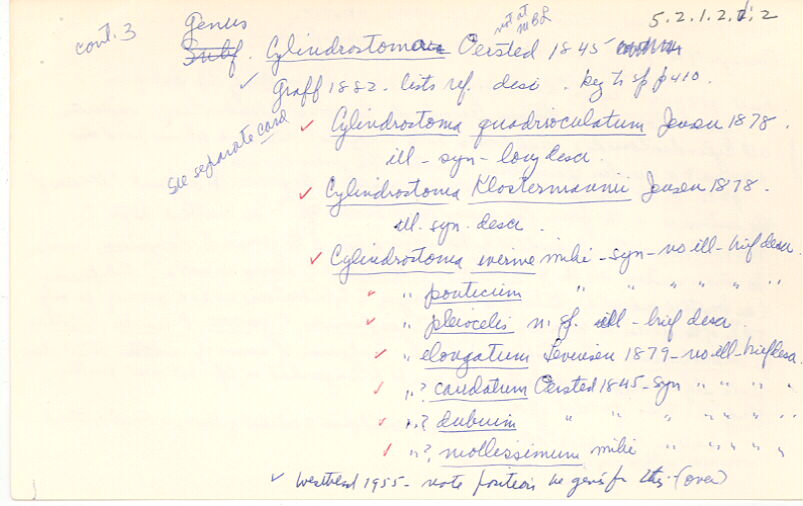 cont. 3
Genus
not at MBL
5.2.1.2.2.2
Subf. Cylindrostoma Oersted 1845
✓ Graff 1882 - lists ref. desc. key to sp p 410.
see separate card
✓ Cylindrostoma quadrioculatum Jensen 1878.
ill - syn - long descr.
✓ Cylindrostoma Klostermannii Jensen 1878.
ill. syn. descr.
✓ Cylindrostoma inerme mihi - syn - no ill - brief descr.
✓ " ponticum " " " " " "
✓ " pleiocelis n. sp. ill - brief descr.
✓ " elongatum Levinsen 1879 - no ill - brief descr.
✓ "? caudatum Oersted 1845 - syn " " " "
✓ "? dubium " " " " " "
✓ "? mollissimum mihi " " " " "
✓ Westblad 1955 - note position he gives for this - (over)